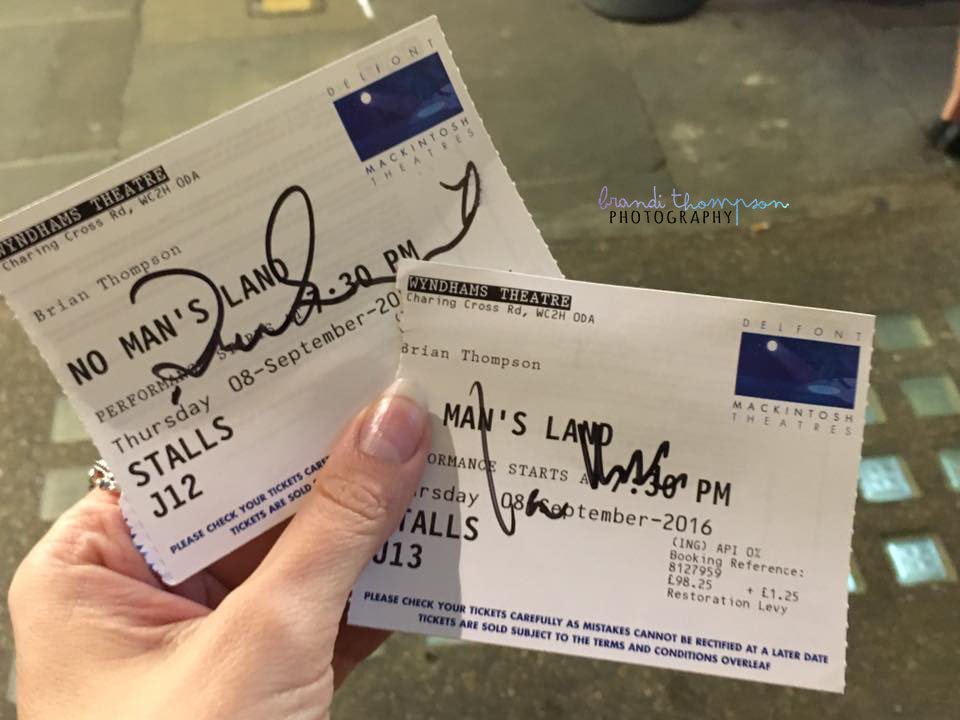 DELFONT
MACKINTOSH
THEATRES
WYNDHAMS THEATRE
Charing Cross Rd, WC2H 0DA
Brian Thompson
NO MAN'S LAND
PERFORMANCE STARTS 7.30 PM
Thursday 08-September-201
STALLS
J12
PLEASE CHECK YOUR TICKETS CARE
TICKETS ARE SOLD S
brandi thompson
PHOTOGRAPHY
WYNDHAMS THEATRE
Charing Cross Rd, WC2H 0DA
DELFONT
MACKINTOSH
THEATRES
Brian Thompson
MAN'S LAND
ORMANCE STARTS A 7.30 PM
rsday 08-September-2016
TALLS
J13
(ING) API 0%
Booking Reference:
8127959
£98.25 + £1.25
Restoration Levy
PLEASE CHECK YOUR TICKETS CAREFULLY AS MISTAKES CANNOT BE RECTIFIED AT A LATER DATE
TICKETS ARE SOLD SUBJECT TO THE TERMS AND CONDITIONS OVERLEAF